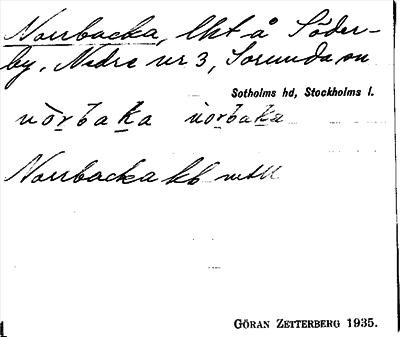 Norrbacka, lht å Söder-
by, Nedre nr 3, Sorunda sn
Sotholms hd, Stockholms l.
Norrbacka kb
GÖRAN ZETTERBERG 1935.